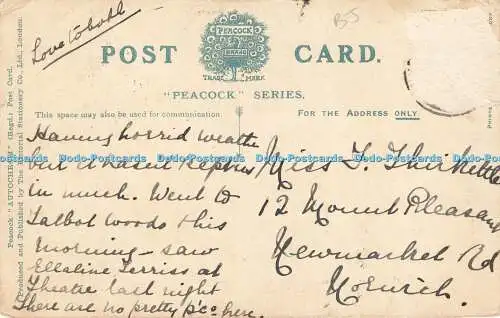 Love to both
BJ
PEACOCK
BRAND
TRADE MARK
POST CARD.
"PEACOCK" SERIES.
This space may also be used for communication.
FOR THE ADDRESS ONLY
Peacock "AUTOCHROM" (Regd.) Post Card.
Produced and Published by The Pictorial Stationery Co., Ltd., London.
Having horrid weather
but it hasent kept us
in much. Went to
Talbot Woods this
morning - saw
Ellaline Terriss at
Theatre last night
There are no pretty p'cs here.
Miss F. Thirkettle
12 Mount Pleasant
Newmarket Rd
Norwich.
Dodo-Postcards Dodo-Postcards Dodo-Postcards Dodo-Postcards Dodo-Postcards Dodo-Postcards